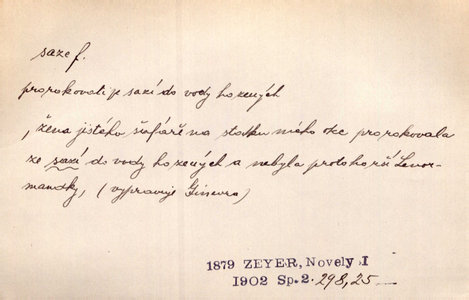 saze f.
prorokovati je sazí do vody hozených
„žena jistého šafáře na statku mého otce prorokovala
ze sazí do vody hozených a nebyla proto horší Lenor-
mandky, (vypravuje Ginevra)
1879 ZEYER, Novely I
1902 Sp. 2. 298,25